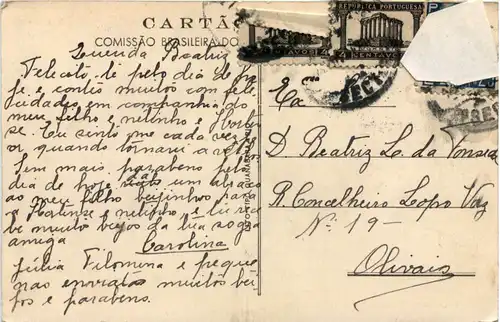 CARTÃ
COMISSÃO BRASILEIRA DO
REPUBLICA PORTUGUESA
CENTAVOS
CENTAVOS
Querida Beatriz
Felecito-te pelo dia de ho
je. e contes muitos com feli
cidades em companhia do
meu filho e netinho e
se. Eu sinto me cada vez
or quando tornarei a
Sem mais. parabens pelo
dia de hoje um abraço
ao meu filho beijinhos para
e netinho e tu rece
be muito beijos da tua sogra
amiga Carolina
Júlia Filomena e peque
nas enviam muitos bei
jos e parabens.
Ex
D. Beatriz L. da Fonseca
R. Concelheiro Lopo Vaz
Nº 19-
Olivais